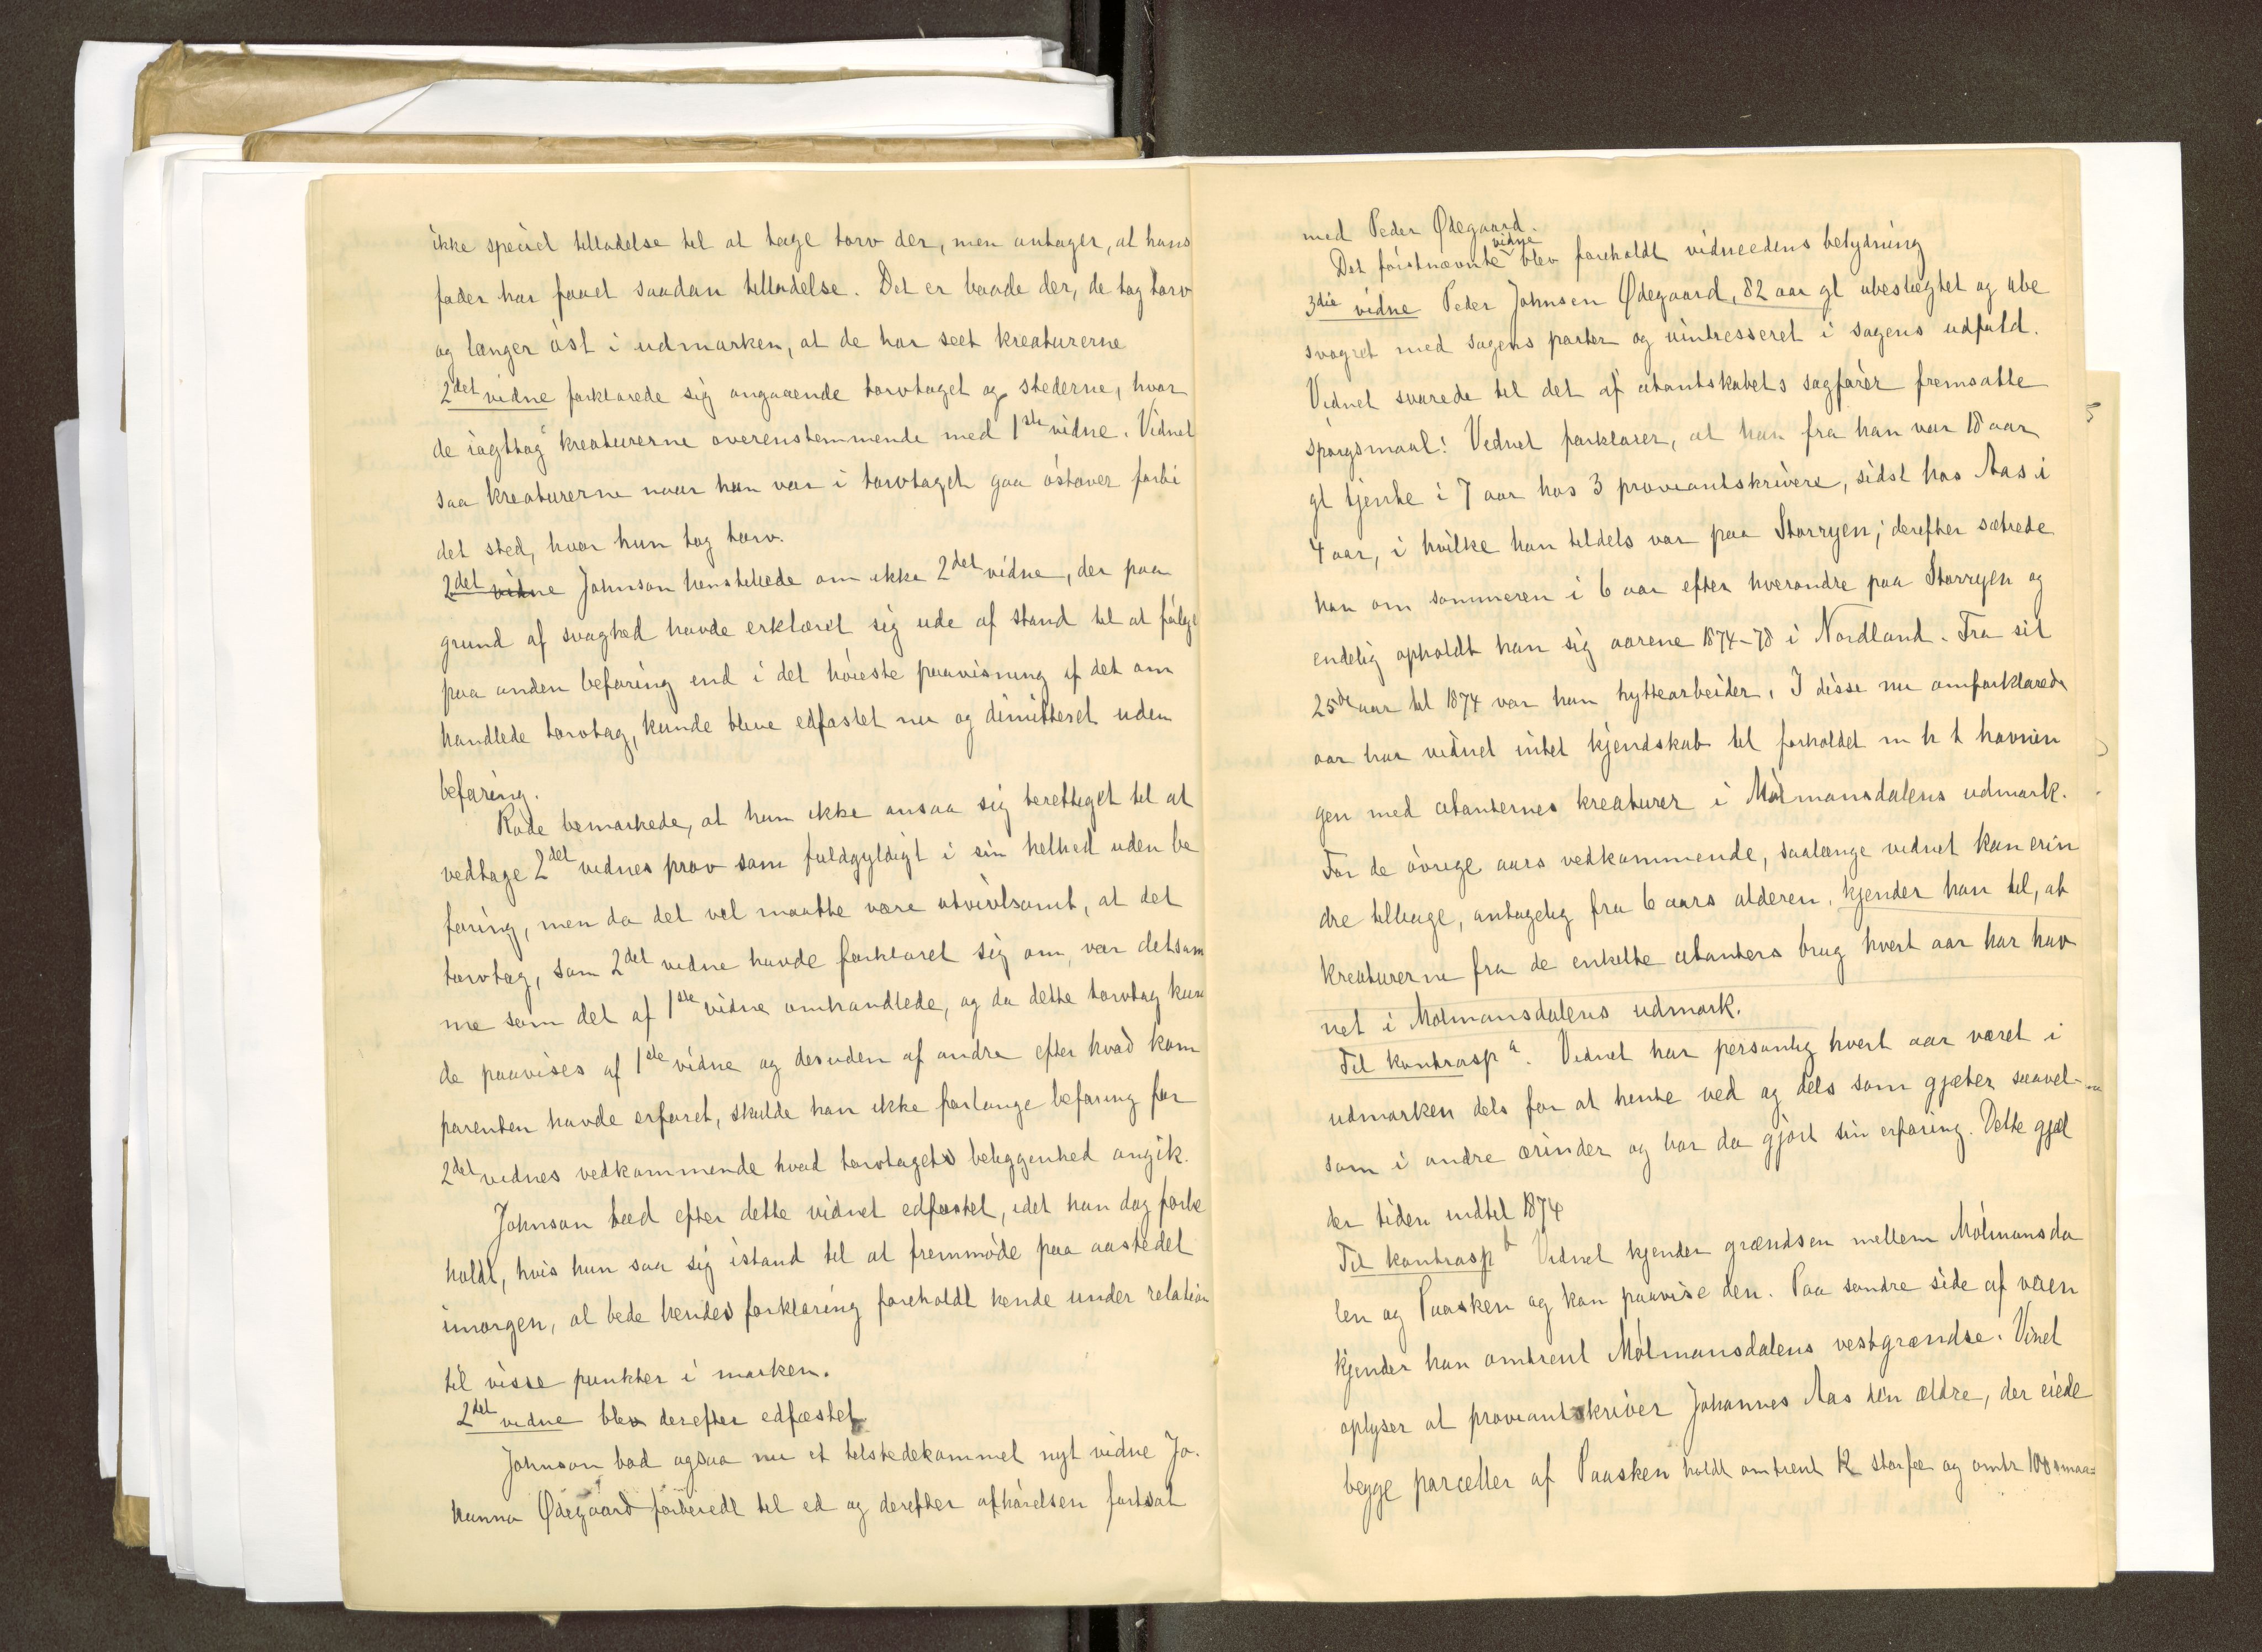 ikke speciel tilladelse til at tage torv der, men antager, at hans
fader har faaet saadan tilladelse. Det er baade der, de tog torv
og længer øst i udmarken, at de har seet kreaturerne
2det vidne forklarede sig angaaende torvtaget og stederne, hvor
de iagttog kreaturerne overenstemmende med 1ste vidne. Vidnet
saa kreaturerne naar hun var i torvtaget gaa østover forbi
det sted, hvor hun tog torv.
2det vidne Johnson henstillede om ikke 2det vidne, der paa
grund af svaghed havde erklæret sig ude af stand til at følge
paa anden befaring end i det høieste paavisning af det om
handlede torvtag, kunde blive edfæstet nu og dimitteret uden
befaring.
Røde bemærkede, at han ikke ansaa sig berettiget til at
vedtage 2det vidnes prov som fuldgyldigt i sin helhed uden be
faring, men da det vel maatte være utvivlsomt, at det
torvtag, som 2det vidne havde forklaret sig om, var detsam
me som det af 1ste vidne omhandlede, og da dette torvtag kun
de paavises af 1ste vidne og desuden af andre efter hvad kom
parenten havde erfaret, skulde han ikke forlange befaring for
2det vidnes vedkommende hvad torvtagets beliggenhed angik.
Johnson bad efter dette vidnet edfæstet, idet han dog forbe
holdt, hvis hun saa sig istand til at fremmøde paa aastedet
imorgen, at bede hendes forklaring foreholdt hende under relation
til visse punkter i marken.
2det vidne blev derefter edfæstet
Johnson bad ogsaa nu et tilstedekommet nyt vidne Jo-
hanna Ødegaard forberedt til ed og derefter afhørelsen fortsat
med Peder Ødegaard.
Det førstnævnte vidne blev foreholdt vidneedens betydning
3die vidne Peder Johnsen Ødegaard, 82 aar gl ubeslægtet og ube
svogret med sagens parter og uintresseret i sagens udfald.
Vidnet svarede til det af utantskabets sagfører fremsatte
spørgsmaal: Vidnet forklarer, at han fra han var 18 aar
gl tjente i 7 aar hos 3 proviantskrivere, sidst hos Aas i
4 aar, i hvilke han tildels var paa Storryen; derefter sætrede
han om sommeren i 6 aar efter hverandre paa Storryen og
endelig opholdt han sig aarene 1874-78 i Nordland. Fra sit
25de aar til 1874 var han hyttearbeider. I disse nu omforklarede
aar har vidnet intet kjendskab til forholdet m h t havnin
gen med utanternes kreaturer i Mølmansdalens udmark.
For de øvrige aars vedkommende, saalænge vidnet kan erin
dre tilbage, antagelig fra 6 aars alderen, kjender han til, at
kreaturerne fra de enkelte utanters brug hvert aar har hav
net i Mølmansdalens udmark.
Til kontrasp a. Vidnet har personlig hvert aar været i
udmarken dels for at hente ved og dels som gjæter saavel
som i andre ærinder og har da gjort sin erfaring. Dette gjæl
der tiden indtil 1874
Til kontrasp b Vidnet kjender grændsen mellem Mølmansda
len og Paasken og kan paavise den. Paa søndre side af veien
kjender han omtrent Mølmansdalens vestgrændse. Vinet
oplyser at proviantskriver Johannes Aas den ældre, der eiede
begge parceller af Paasken holdt omtrent 12 storfæ og omtr 100 smaa=